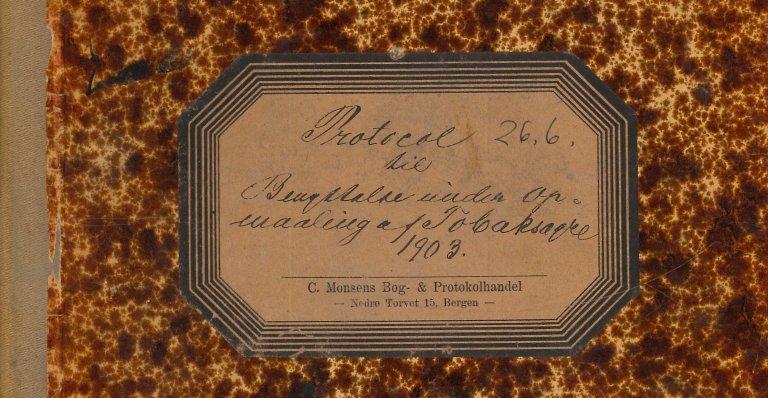 Protocol 26.6.
til
Benyttelse under Op-
maaling af Tobaksagre
1903.
C. Monsens Bog- & Protokolhandel
— Nedre Torvet 15, Bergen —